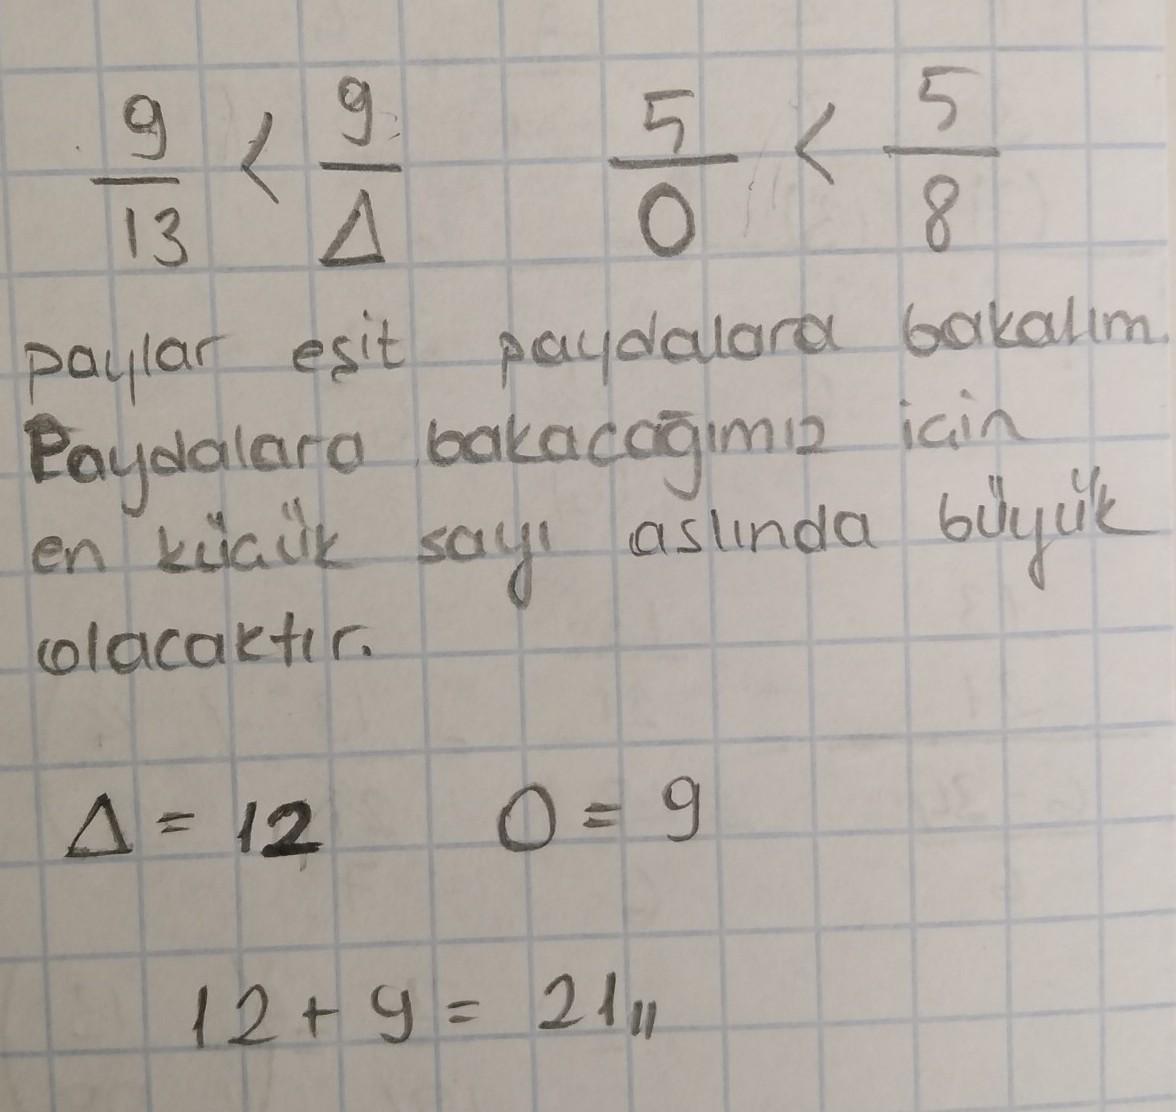 9/13 < 9/Δ 5/O < 5/8
paylar eşit paydalara bakalım.
Paydalara bakacağımız için
en küçük sayı aslında büyük
olacaktır.
Δ = 12 O = 9
12 + 9 = 21,,